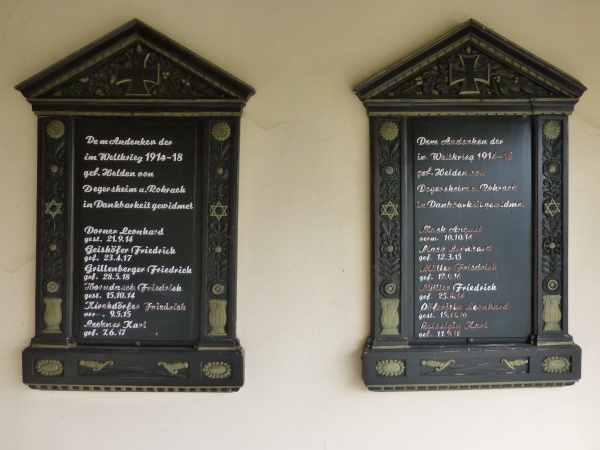 Dem Andenken der
im Weltkrieg 1914-18
gef. Helden von
Degersheim u. Rohrach
in Dankbarkeit gewidmet
Dorner Leonhard
gest. 21.9.14
Geishöfer Friedrich
gef. 23.4.17
Grillenberger Friedrich
gef. 28.5.18
Friedrich
gest. 15.10.14
Kirchdörfer Friedrich
9.5.15
Lechner Karl
gef. 7.6.17
Dem Andenken der
im Weltkrieg 1914-18
gef. Helden von
Degersheim u. Rohrach
in Dankbarkeit gewidmet
Mack August
verm. 10.10.14
Mack
gef. 12.3.15
Müller Friedrich
gef.
Müller Friedrich
gef.
Leonhard
gest.
Karl
gef. 11.9.18